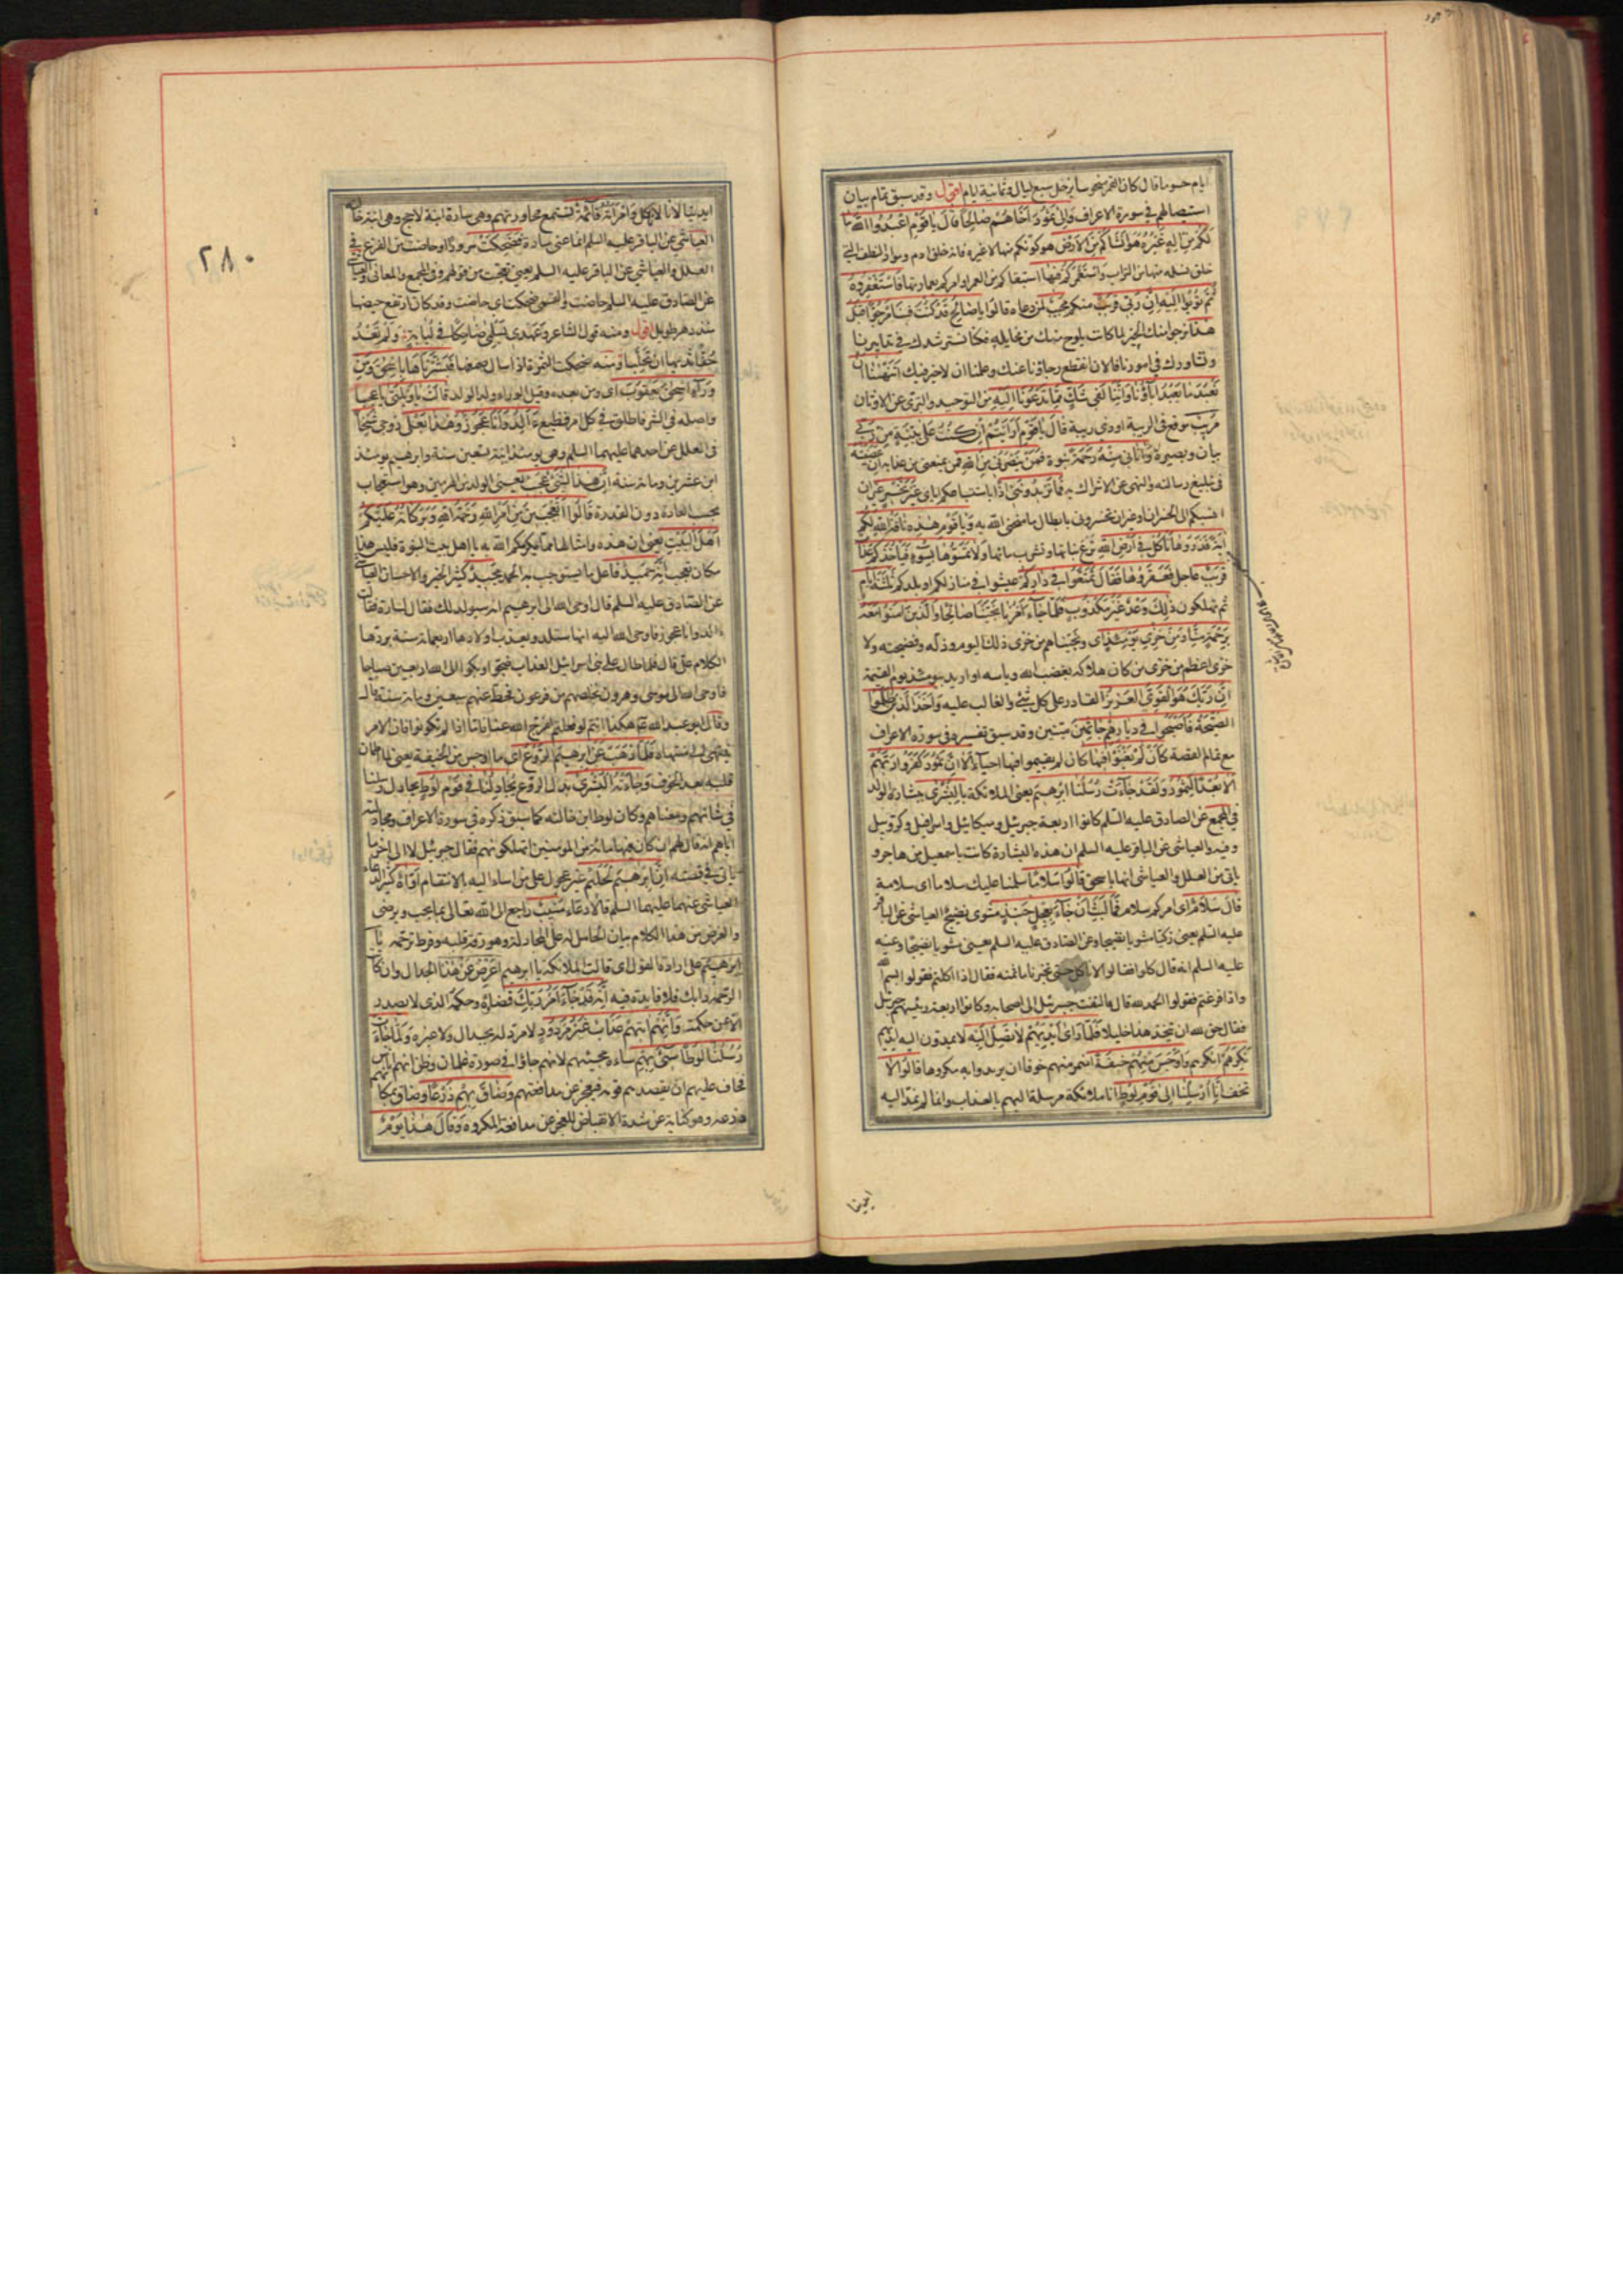 ايام حسوما قال كان القمر منحوسا بزحل سبع ليال وثمانية ايام اقول وقد سبق تمام بيان
استيصالهم في سورة الاعراف والى ثمود اخاهم صالحا قال يا قوم اعبدوا الله ما
لكم من اله غيره هو انشاكم من الارض هو كونكم منها لا غيره فانه خلق ادم ومواد النطف التي
خلق نسله منها من التراب واستعمركم فيها استبقاكم من العمر او امركم بعمارتها فاستغفروه
ثم توبوا اليه ان ربي قريب منكم مجيب لمن دعاه قالوا يا صالح قد كنت فينا مرجوا قبل
هذا نرجو منك الخير لما كانت يلوح منك من مخايله فكنا نسترشدك في تدابيرنا
ونشاورك في امورنا فالان انقطع رجاؤنا عنك وعلمنا ان لا خير فيك اتنهينا ان
نعبد ما يعبد اباؤنا واننا لفي شك مما تدعونا اليه من التوحيد والتبري عن الاوثان
مريب موقع في الريبة او ذي ريبة قال يا قوم ارايتم ان كنت على بينة من ربي
بيان وبصيرة واتاني منه رحمة نبوة فمن ينصرني من الله فمن يمنعني من عذابه ان عصيته
في تبليغ رسالته والنهي عن الاشراك به فما تزيدونني اذا باستتباعكم اياي غير تخسير غير ان
انسبكم الى الخسران او غير ان تخسروني بابطال ما منحني الله به ويا قوم هذه ناقة الله لكم
اية فذروها تاكل في ارض الله ترع نباتها وتشرب ماءها ولا تمسوها بسوء فياخذكم عذاب
قريب عاجل فعقروها فقال تمتعوا في داركم عيشوا في منازلكم او بلدكم ثلثة ايام
ثم تهلكون ذلك وعد غير مكذوب فلما جاء امرنا نجينا صالحا والذين امنوا معه
برحمة منا ومن خزي يومئذ اي ونجيناهم من خزي ذلك اليوم وذله وفضيحته ولا
خزي اعظم من خزي من كان هلاكه بغضب الله وباسه او اريد بيومئذ يوم القيمة
ان ربك هو القوي العزيز القادر على كل شيء والغالب عليه واخذ الذين ظلموا
الصيحة فاصبحوا في ديارهم جاثمين ميتين وقد سبق تفسيره في سورة الاعراف
مع تمام القصة كان لم يغنوا فيها كان لم يقيموا فيها احياء الا ان ثمود كفروا ربهم
الا بعدا لثمود ولقد جاءت رسلنا ابرهيم يعني الملائكة بالبشرى ببشارة الولد
في المجمع عن الصادق عليه السلم كانوا اربعة جبرئيل وميكائيل واسرافيل وكروبيل
وفيه والعياشي عن الباقر عليه السلم ان هذه البشارة كانت باسمعيل من هاجر و
ياتي من العلل والعياشي انها باسحق قالوا سلاما سلمنا عليك سلاما اي سلامة
قال سلام اي امركم سلام فما لبث ان جاء بعجل حنيذ مشوي نضيج العياشي عن الباقر
عليه السلم يعني زكيا مشويا نضيجا وعن الصادق عليه السلم يعني مشويا نضيجا وعنه
عليه السلم انه قال كلوا فقالوا لا ناكل حتى تخبرنا ما ثمنه فقال اذا اكلتم فقولوا بسم الله
واذا فرغتم فقولوا الحمد لله قال فالتفت جبرئيل الى اصحابه وكانوا اربعة رئيسهم جبرئيل
فقال حق لله ان يتخذ هذا خليلا فلما راى ايديهم لا تصل اليه لا يمدون اليه ايديهم
نكرهم انكرهم واوجس منهم خيفة اضمر منهم خوفا ان يريدوا به مكروها قالوا لا
تخف انا ارسلنا الى قوم لوط انا ملائكة مرسلة اليهم بالعذاب وانما لم نمد اليه
ايدينا
٢٨٠
ايدينا لانا لا ناكل وامراته قائمة تستمع محاورتهم وهي سارة ابنة لاحج وهي ابنة خالته
العياشي عن الباقر عليه السلم انما عنى سارة فضحكت سرورا او حاضت من الفزع في
العلل والعياشي عن الباقر عليه السلم يعني تعجبت من قولهم وفي المجمع والمعاني والعياشي
عن الصادق عليه السلم حاضت والقمي ضحكت اي حاضت وقد كان ارتفع حيضها
منذ دهر طويل اقول ومنه قول الشاعر وعهدي بسلمى ضاحكا في لبابة ولم تعد
حقا ثديها ان تحلبا ومنه ضحكت السمرة اذا سال صمغها فبشرناها باسحق ومن
وراء اسحق يعقوب اي ومن بعده وقيل الوراء ولد الولد قالت يا ويلتى يا عجبا
واصله في الشر فاطلق في كل امر فظيع ءالد وانا عجوز وهذا بعلي زوجي شيخا
في العلل عن احدهما عليهما السلم وهي يومئذ ابنة تسعين سنة وابرهيم يومئذ
ابن عشرين ومائة سنة ان هذا لشيء عجيب يعني الولد من الهرمين وهو استعجاب
بحسب العادة دون القدرة قالوا اتعجبين من امر الله رحمة الله وبركاته عليكم
اهل البيت يعني ان هذه وامثالها مما يكرمكم الله به يا اهل بيت النبوة فليس هذا
مكان تعجب انه حميد فاعل ما يستوجب به الحمد مجيد كثير الخير والاحسان العياشي
عن الصادق عليه السلم قال اوحى الله الى ابرهيم انه سيولد لك فقال لسارة فقالت
ءالد وانا عجوز فاوحى الله اليه انها ستلد ويعذب اولادها اربعمائة سنة بردها
الكلام علي قال فلما طال على بني اسرائيل العذاب ضجوا وبكوا الى الله اربعين صباحا
فاوحى الله الى موسى وهرون نخلصهم من فرعون فحط عنهم سبعين ومائة سنة قال
وقال ابو عبد الله ع هكذا انتم لو فعلتم لفرج الله عنا فاما اذا لم تكونوا فان الامر
ينتهي الى منتهاه فلما ذهب عن ابرهيم الروع اي ما اوجس من الخيفة يعني لما اطمان
قلبه بعد الخوف وجاءته البشرى بدل الروع يجادلنا في قوم لوط يجادل رسلنا
في شانهم ومعناهم وكان لوط ابن خالته كما سبق ذكره في سورة الاعراف ومجادلته
اياهم انه قال لهم ان كان فيها مائة من المؤمنين اتهلكونهم فقال جبرئيل لا الى اخر ما
ياتي في قصته ان ابرهيم لحليم غير عجول على من اساء اليه بالانتقام اواه كثير الدعاء
العياشي عنهما عليهما السلم قالا دعاء منيب راجع الى الله تعالى بما يحب ويرضى
والغرض من هذا الكلام بيان الحامل له على المجادلة وهو رقة قلبه وفرط ترحمه يا
ابرهيم على ارادة القول اي قالت الملائكة يا ابرهيم اعرض عن هذا الجدال وان كانت
الرحمة دابك فلا فايدة فيه انه قد جاء امر ربك قضاؤه وحكمه الذي لا يصدر
الا عن حكمة وانهم اتيهم عذاب غير مردود لا مرد له بجدال ولا غيره ولما جاءت
رسلنا لوطا سيء بهم ساءه مجيئهم لانهم جاؤا في صورة غلمان وظن انهم اناس
فخاف عليهم ان يقصدهم قومه فيعجز عن مدافعتهم وضاق بهم ذرعا وضاق بمكانهم
ذرعه وهو كناية عن شدة الانقباض للعجز عن مدافعة المكروه وقال هذا يوم